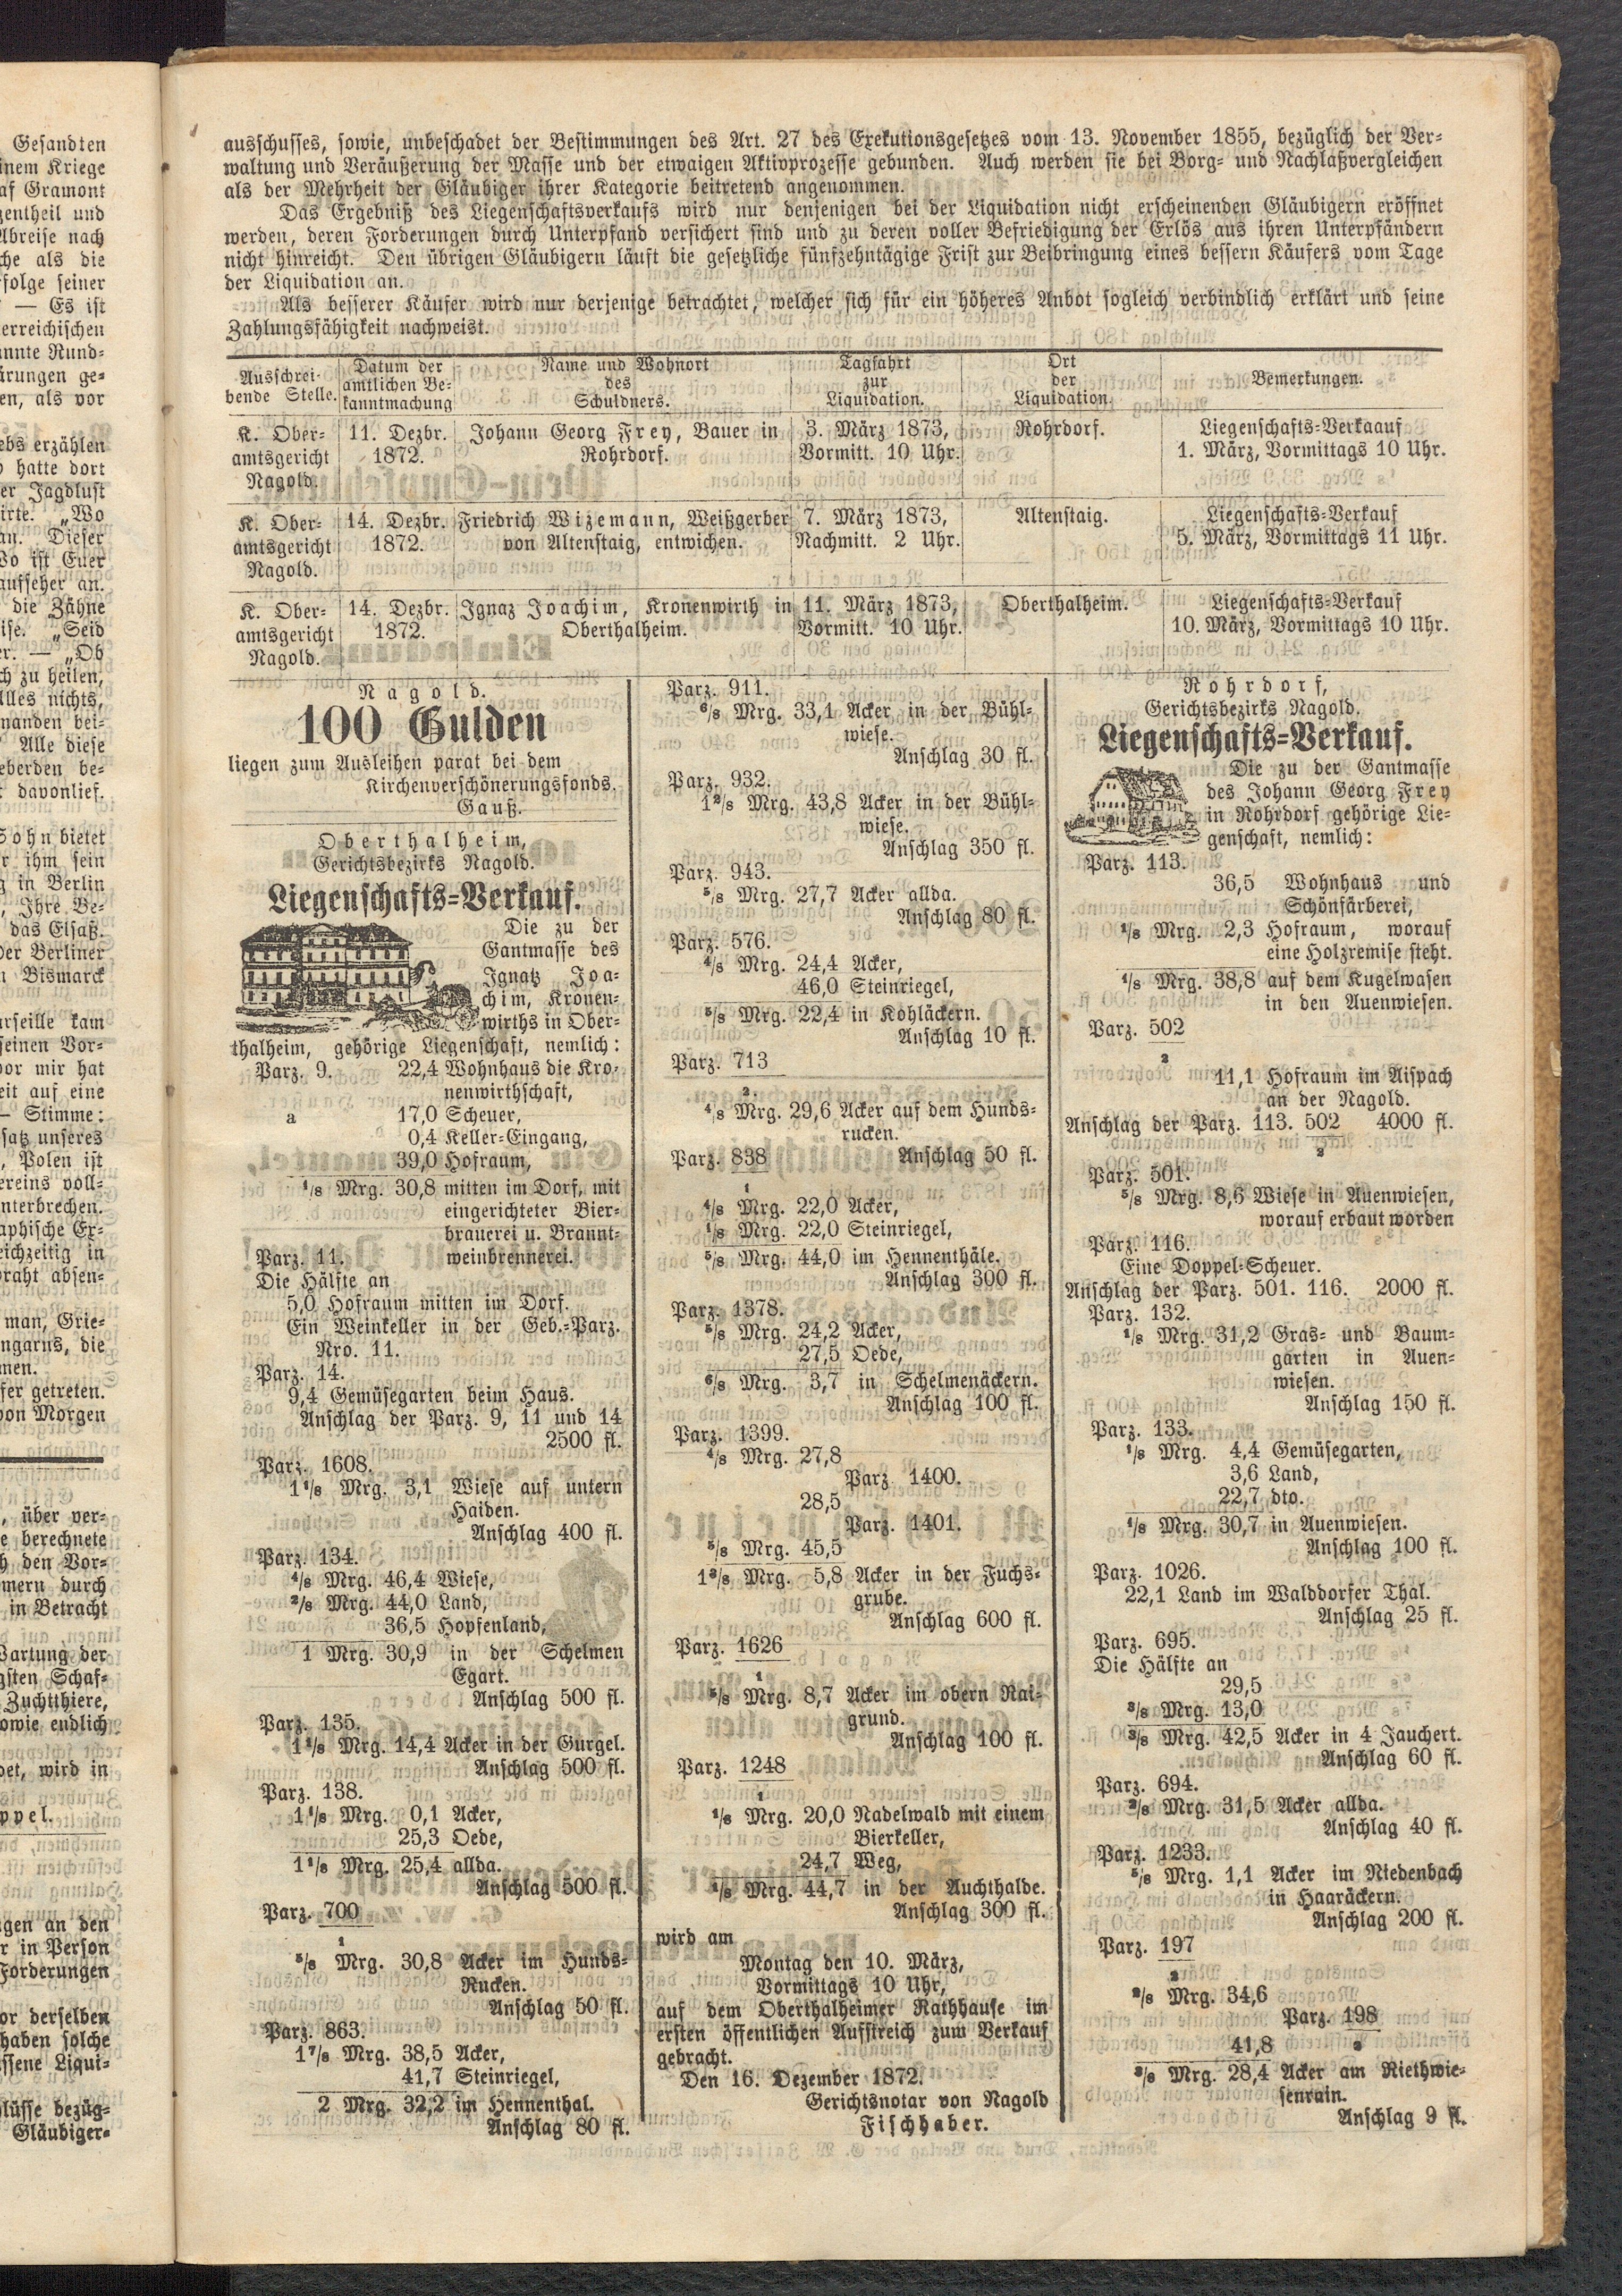 Gesandten
inem Kriege
af Gramont
zentheil und
Abreise nach
che als die
folge seiner
— Es ist
erreichischen
annte Rund-
ärungen ge-
en, als vor
ebs erzählen
hatte dort
er Jagdlust
irte. „Wo
an. Dieser
Wo ist Euer
aufseher an.
die Zähne
ise. „Seid
er. — „Ob
ch zu heilen,
Alles nichts,
nanden bei-
Alle diese
eberden be-
davonlief.
Sohn bietet
r ihm sein
g in Berlin
, Ihre Be-
das Elsaß.
Der Berliner
n Bismarck
arseille kam
seinen Vor-
vor mir hat
eit auf eine
— Stimme:
satz unseres
, Polen ist
ereins voll-
nterbrechen.
aphische Ex-
eichzeitig in
raht absen-
man, Grie-
ngarns, die
men.
fer getreten.
von Morgen
, über ver-
e berechnete
h den Vor-
mern durch
in Betracht
Wartung der
gsten Schaf-
Zuchtthiere,
owie endlich
det, wird in
ppel.
gen an den
r in Person
Forderungen
or derselben
haben solche
ssene Liqui-
lüsse bezüg-
Gläubiger-
ausschusses, sowie, unbeschadet der Bestimmungen des Art. 27 des Exekutionsgesetzes vom 13. November 1855, bezüglich der Ver-
waltung und Veräußerung der Masse und der etwaigen Aktivprozesse gebunden. Auch werden sie bei Borg- und Nachlaßvergleichen
als der Mehrheit der Gläubiger ihrer Kategorie beitretend angenommen.
Das Ergebniß des Liegenschaftsverkaufs wird nur denjenigen bei der Liquidation nicht erscheinenden Gläubigern eröffnet
werden, deren Forderungen durch Unterpfand versichert sind und zu deren voller Befriedigung der Erlös aus ihren Unterpfändern
nicht hinreicht. Den übrigen Gläubigern läuft die gesetzliche fünfzehntägige Frist zur Beibringung eines bessern Käufers vom Tage
der Liquidation an.
Als besserer Käufer wird nur derjenige betrachtet, welcher sich für ein höheres Anbot sogleich verbindlich erklärt und seine
Zahlungsfähigkeit nachweist.
Ausschrei-
bende Stelle.
Datum der
amtlichen Be-
kanntmachung
Name und Wohnort
des
Schuldners.
Tagfahrt
zur
Liquidation.
Ort
der
Liquidation.
Bemerkungen.
K. Ober-
amtsgericht
Nagold.
11. Dezbr.
1872.
Johann Georg Frey, Bauer in
Rohrdorf.
3. März 1873,
Vormitt. 10 Uhr.
Rohrdorf.
Liegenschafts-Verkaauf
1. März, Vormittags 10 Uhr.
K. Ober-
amtsgericht
Nagold.
14. Dezbr.
1872.
Friedrich Wizemann, Weißgerber
von Altenstaig, entwichen.
7. März 1873,
Nachmitt. 2 Uhr.
Altenstaig.
Liegenschafts-Verkauf
5. März, Vormittags 11 Uhr.
K. Ober-
amtsgericht
Nagold.
14. Dezbr.
1872.
Ignaz Joachim, Kronenwirth in
Oberthalheim.
11. März 1873,
Vormitt. 10 Uhr.
Oberthalheim.
Liegenschafts-Verkauf
10. März, Vormittags 10 Uhr.
Nagold.
100 Gulden
liegen zum Ausleihen parat bei dem
Kirchenverschönerungsfonds.
Gauß.
Oberthalheim,
Gerichtsbezirks Nagold.
Liegenschafts-Verkauf.
Die zu der
Gantmasse des
Ignatz Joa-
chim, Kronen-
wirths in Ober-
thalheim, gehörige Liegenschaft, nemlich:
Parz. 9. 22,4 Wohnhaus die Kro-
nenwirthschaft,
a 17,0 Scheuer,
0,4 Keller-Eingang,
39,0 Hofraum,
1/8 Mrg. 30,8 mitten im Dorf, mit
eingerichteter Bier-
brauerei u. Brannt-
Parz. 11. weinbrennerei.
Die Hälfte an
5,0 Hofraum mitten im Dorf.
Ein Weinkeller in der Geb.-Parz.
Nro. 11.
Parz. 14.
9,4 Gemüsegarten beim Haus.
Anschlag der Parz. 9, 11 und 14
2500 fl.
Parz. 1608.
1 1/8 Mrg. 3,1 Wiese auf untern
Haiden.
Anschlag 400 fl.
Parz. 134.
4/8 Mrg. 46,4 Wiese,
2/8 Mrg. 44,0 Land,
36,5 Hopfenland,
1 Mrg. 30,9 in der Schelmen
Egart.
Anschlag 500 fl.
Parz. 135.
Mrg. 14,4 Acker in der Gurgel.
Anschlag 500 fl.
Parz. 138.
1 1/8 Mrg. 0,1 Acker,
25,3 Oede,
1 1/8 Mrg. 25,4 allda.
Anschlag 500 fl.
Parz. 700
1
5/8 Mrg. 30,8 Acker im Hunds-
Rucken.
Anschlag 50 fl.
Parz. 863.
1 7/8 Mrg. 38,5 Acker,
41,7 Steinriegel,
2 Mrg. 32,2 im Hennenthal.
Anschlag 80 fl.
Parz. 911.
6/8 Mrg. 33,1 Acker in der Bühl-
wiese.
Anschlag 30 fl.
Parz. 932.
1 2/8 Mrg. 43,8 Acker in der Bühl-
wiese.
Anschlag 350 fl.
Parz. 943.
5/8 Mrg. 27,7 Acker allda.
Anschlag 80 fl.
Parz. 576.
4/8 Mrg. 24,4 Acker,
46,0 Steinriegel,
5/8 Mrg. 22,4 in Kohläckern.
Anschlag 10 fl.
Parz. 713
2
4/8 Mrg. 29,6 Acker auf dem Hunds-
rucken.
Parz. 838 Anschlag 50 fl.
1
4/8 Mrg. 22,0 Acker,
1/8 Mrg. 22,0 Steinriegel,
5/8 Mrg. 44,0 im Hennenthäle.
Anschlag 300 fl.
Parz. 1378.
5/8 Mrg. 24,2 Acker,
27,5 Oede,
6/8 Mrg. 3,7 in Schelmenäckern.
Anschlag 100 fl.
Parz. 1399.
4/8 Mrg. 27,8
Parz. 1400.
28,5
Parz. 1401.
5/8 Mrg. 45,5
1 3/8 Mrg. 5,8 Acker in der Fuchs-
grube.
Anschlag 600 fl.
Parz. 1626
1
5/8 Mrg. 8,7 Acker im obern Rai-
grund.
Anschlag 100 fl.
Parz. 1248
1
1/8 Mrg. 20,0 Nadelwald mit einem
Bierkeller,
24,7 Weg,
1/8 Mrg. 44,7 in der Auchthalde.
Anschlag 300 fl.
wird am
Montag den 10. März,
Vormittags 10 Uhr,
auf dem Oberthalheimer Rathhause im
ersten öffentlichen Aufstreich zum Verkauf
gebracht.
Den 16. Dezember 1872.
Gerichtsnotar von Nagold
Fischhaber.
Rohrdorf,
Gerichtsbezirks Nagold.
Liegenschafts-Verkauf.
Die zu der Gantmasse
des Johann Georg Frey
in Rohrdorf gehörige Lie-
genschaft, nemlich:
Parz. 113.
36,5 Wohnhaus und
Schönfärberei,
1/8 Mrg. 2,3 Hofraum, worauf
eine Holzremise steht.
1/8 Mrg. 38,8 auf dem Kugelwasen
in den Auenwiesen.
Parz. 502
2
11,1 Hofraum im Aispach
an der Nagold.
Anschlag der Parz. 113. 502 4000 fl.
2
Parz. 501.
5/8 Mrg. 8,6 Wiese in Auenwiesen,
worauf erbaut worden
Parz. 116.
Eine Doppel-Scheuer.
Anschlag der Parz. 501. 116. 2000 fl.
Parz. 132.
1/8 Mrg. 31,2 Gras- und Baum-
garten in Auen-
wiesen.
Anschlag 150 fl.
Parz. 133.
1/8 Mrg. 4,4 Gemüsegarten,
3,6 Land,
22,7 dto.
1/8 Mrg. 30,7 in Auenwiesen.
Anschlag 100 fl.
Parz. 1026.
22,1 Land im Walddorfer Thal.
Anschlag 25 fl.
Parz. 695.
Die Hälfte an
29,5
3/8 Mrg. 13,0
3/8 Mrg. 42,5 Acker in 4 Jauchert.
Anschlag 60 fl.
Parz. 694.
Mrg. 31,5 Acker allda.
Anschlag 40 fl.
Parz. 1233.
5/8 Mrg. 1,1 Acker im Niedenbach
in Haaräckern.
Anschlag 200 fl.
Parz. 197
2
2/8 Mrg. 34,6
Parz. 198
41,8 2
3/8 Mrg. 28,4 Acker am Riethwie-
senrain.
Anschlag 9 fl.